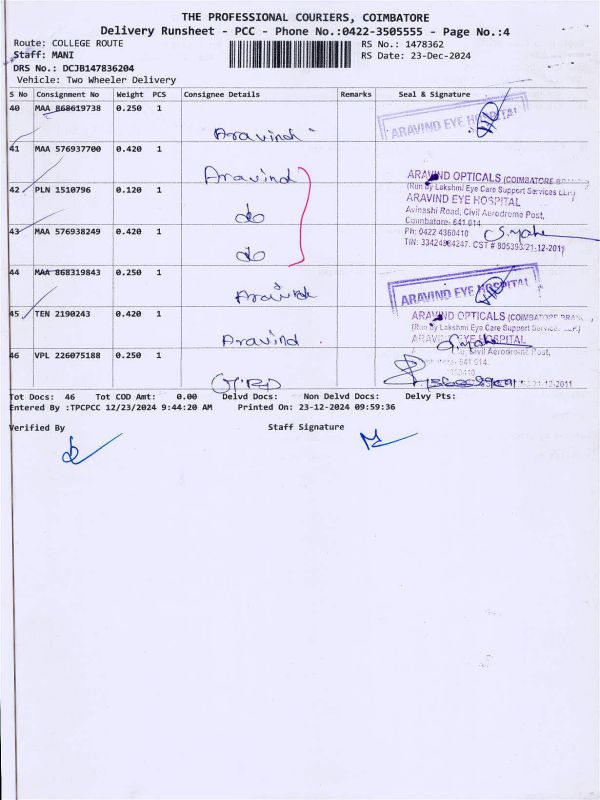 THE PROFESSIONAL COURIERS, COIMBATORE
Delivery Runsheet - PCC - Phone No.:0422-3505555 - Page No.:4
Route: COLLEGE ROUTE RS No.: 1478362
Staff: MANI RS Date: 23-Dec-2024
DRS No.: DCJB147836204
Vehicle: Two Wheeler Delivery
S No Consignment No Weight PCS Consignee Details Remarks Seal & Signature
40 MAA 868619738 0.250 1
Aravind
ARAVIND EYE HOSPITAL
41 MAA 576937700 0.420 1
Aravind
ARAVIND OPTICALS (COIMBATORE BRANCH)
42 PLN 1510796 0.120 1
(Run By Lakshmi Eye Care Support Services LLP.)
ARAVIND EYE HOSPITAL
Avinashi Road, Civil Aerodrome Post,
do
Coimbatore- 641 014.
43 MAA 576938249 0.420 1
Ph: 0422 4360410
TIN: 33424984247. CST # 805393/21-12-2011
do
44 MAA 868319843 0.250 1
Aravind
ARAVIND EYE HOSPITAL
45 TEN 2190243 0.420 1
ARAVIND OPTICALS (COIMBATORE BRAN
(Run By Lakshmi Eye Care Support Services LLP.)
Aravind
ARAVIND EYE HOSPITAL
46 VPL 226075188 0.250 1
Civil Aerodrome Post,
641 014.
4360410
21-12-2011
Tot Docs: 46 Tot COD Amt: 0.00 Delvd Docs: Non Delvd Docs: Delvy Pts:
Entered By :TPCPCC 12/23/2024 9:44:20 AM Printed On: 23-12-2024 09:59:36
Verified By Staff Signature